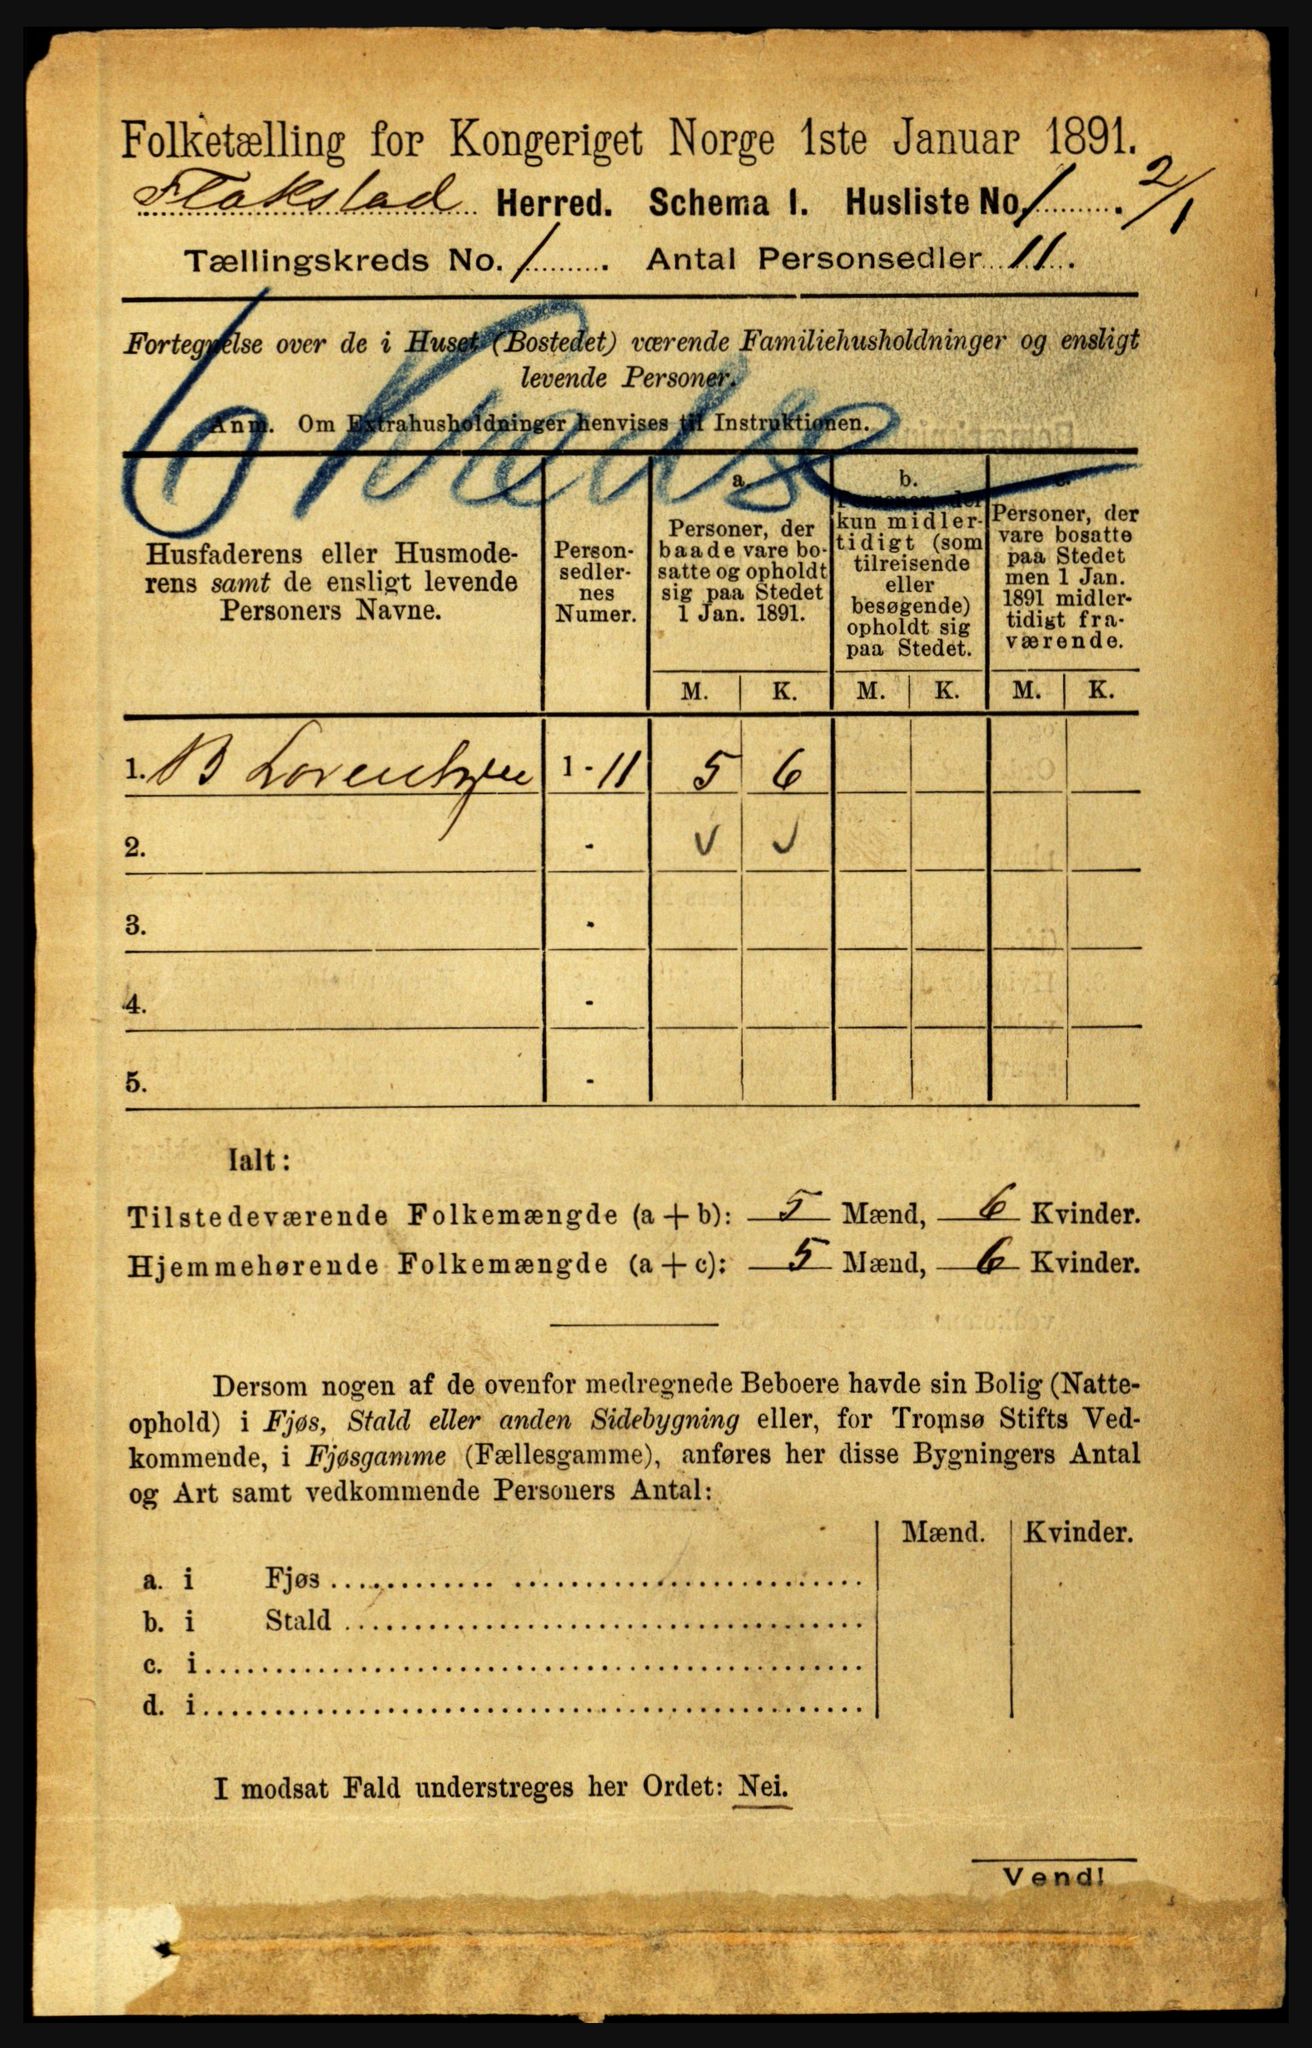 Folketælling for Kongeriget Norge 1ste Januar 1891.
Flakstad Herred. Schema I. Husliste No. 1. 2/1
Tællingskreds No. 1. Antal Personsedler 11.
Fortegnelse over de i Huset (Bostedet) værende Familiehusholdninger og ensligt
levende Personer.
Anm. Om Extrahusholdninger henvises til Instruktionen.
6 Kredse
Husfaderens eller Husmode-
rens samt de ensligt levende
Personers Navne.
Person-
sedler-
nes
Numer.
a.
Personer, der
baade vare bo-
satte og opholdt
sig paa Stedet
1 Jan. 1891.
b.
Personer, der
kun midler-
tidigt (som
tilreisende
eller
besøgende)
opholdt sig
paa Stedet.
c.
Personer, der
vare bosatte
paa Stedet
men 1 Jan.
1891 midler-
tidigt fra-
værende.
M. K. M. K. M. K.
1. B Lorentzen 1 - 11 5 6
2. - √ √
3. -
4. -
5. -
Ialt:
Tilstedeværende Folkemængde (a + b): 5 Mænd, 6 Kvinder.
Hjemmehørende Folkemængde (a + c): 5 Mænd, 6 Kvinder.
Dersom nogen af de ovenfor medregnede Beboere havde sin Bolig (Natte-
ophold) i Fjøs, Stald eller anden Sidebygning eller, for Tromsø Stifts Ved-
kommende, i Fjøsgamme (Fællesgamme), anføres her disse Bygningers Antal
og Art samt vedkommende Personers Antal:
Mænd. Kvinder.
a. i Fjøs
b. i Stald
c. i
d. i
I modsat Fald understreges her Ordet: Nei.
Vend!